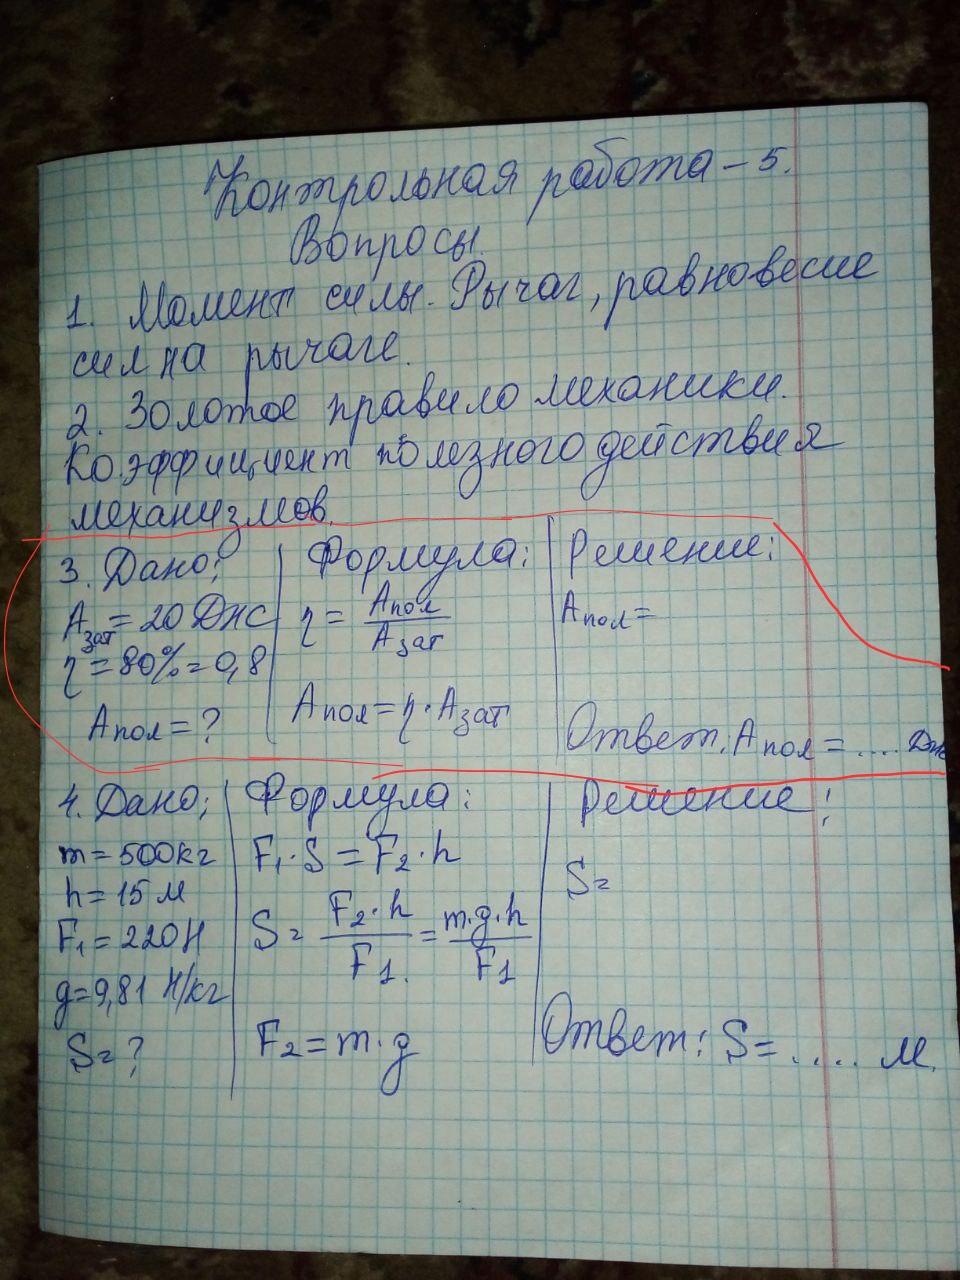 Контрольная работа - 5.
Вопросы.
1. Момент силы. Рычаг, равновесие
сил на рычаге.
2. Золотое правило механики.
Коэффициент полезного действия
механизмов.
3. Дано:
Aзат = 20 Дж
η = 80% = 0,8
Aпол = ?
Формула:
η = Aпол / Aзат
Aпол = η · Aзат
Решение:
Aпол =
Ответ. Aпол = .... Дж
4. Дано:
m = 500 кг
h = 15 м
F₁ = 220 Н
g = 9,81 Н/кг
S = ?
Формула:
F₁ · S = F₂ · h
S = F₂ · h / F₁. = m · g · h / F₁
F₂ = m · g
Решение:
S =
Ответ: S = ..... м.